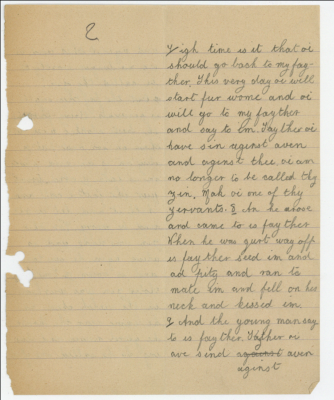 2
Igh time is it that oi
should go back to my fay-
ther. This very day oi will
start fur wome and oi
will go to my fayther
and say to Em. Fayther oi
have sin aginst aven
and aginst thee. oi am
no longer to be called thy
zin. Mak oi one of thy
zervants. 8 An he arove
and came to is fayther
When he was gurt way off
is fayther seed im and
ad pity and ran to
mate im and fell on her
neck and kissed im.
9 And the young man say
to is fayther. Fayther oi
ave sind against aven
aginst